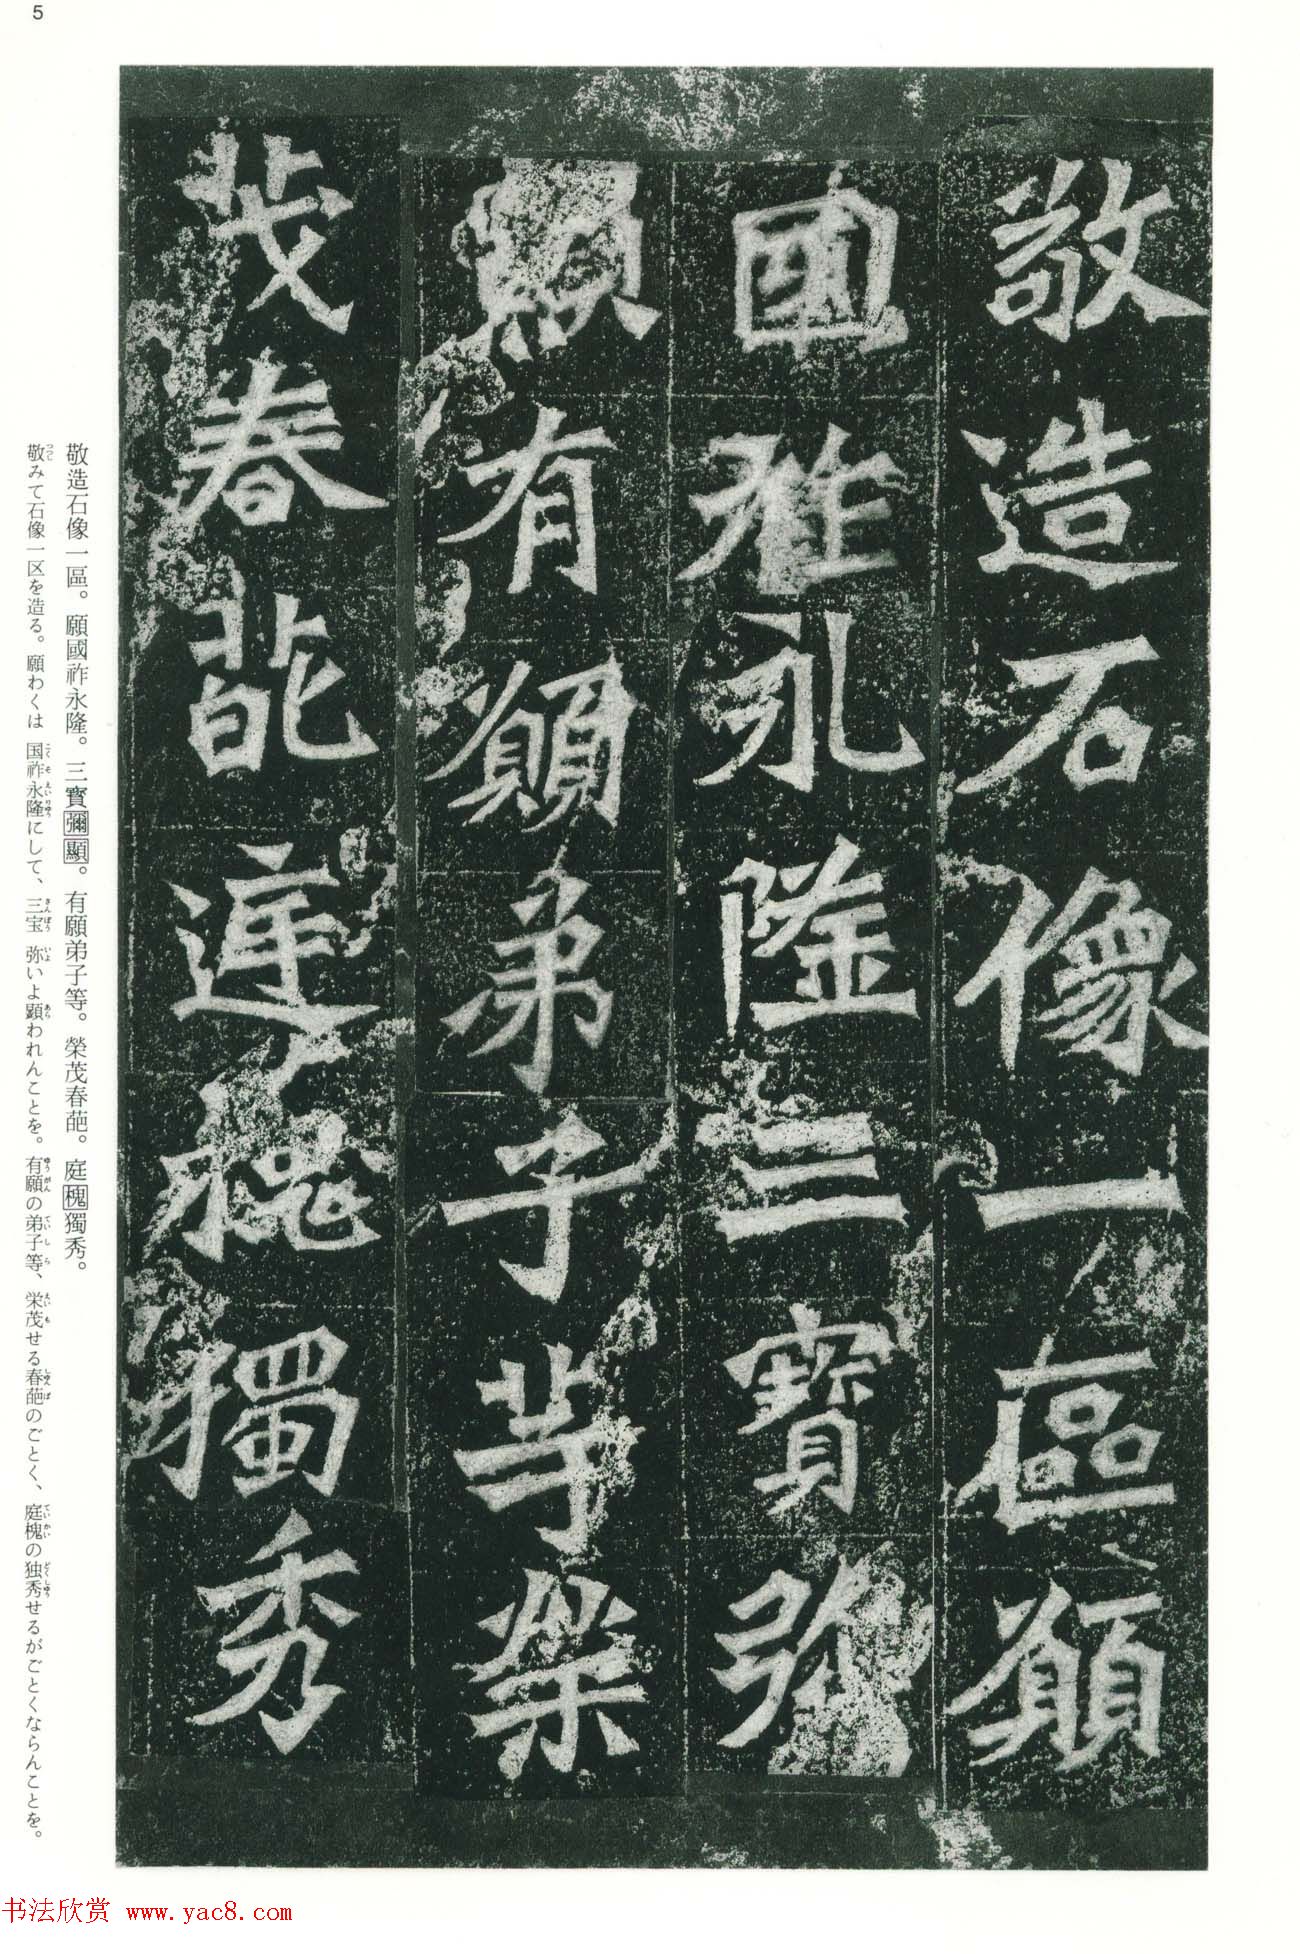 5
敬造石像一區願
國祚永隆三寶彌
顯有願弟子等榮
茂春葩庭槐獨秀
敬造石像一區。願國祚永隆。三寶彌顯。有願弟子等。榮茂春葩。庭槐獨秀。
敬みて石像一区を造る。願わくは国祚永隆にして、三宝弥いよ顕われんことを。有願の弟子等、栄茂せる春葩のごとく、庭槐の独秀せるがごとくならんことを。
书法欣赏 www.yac8.com